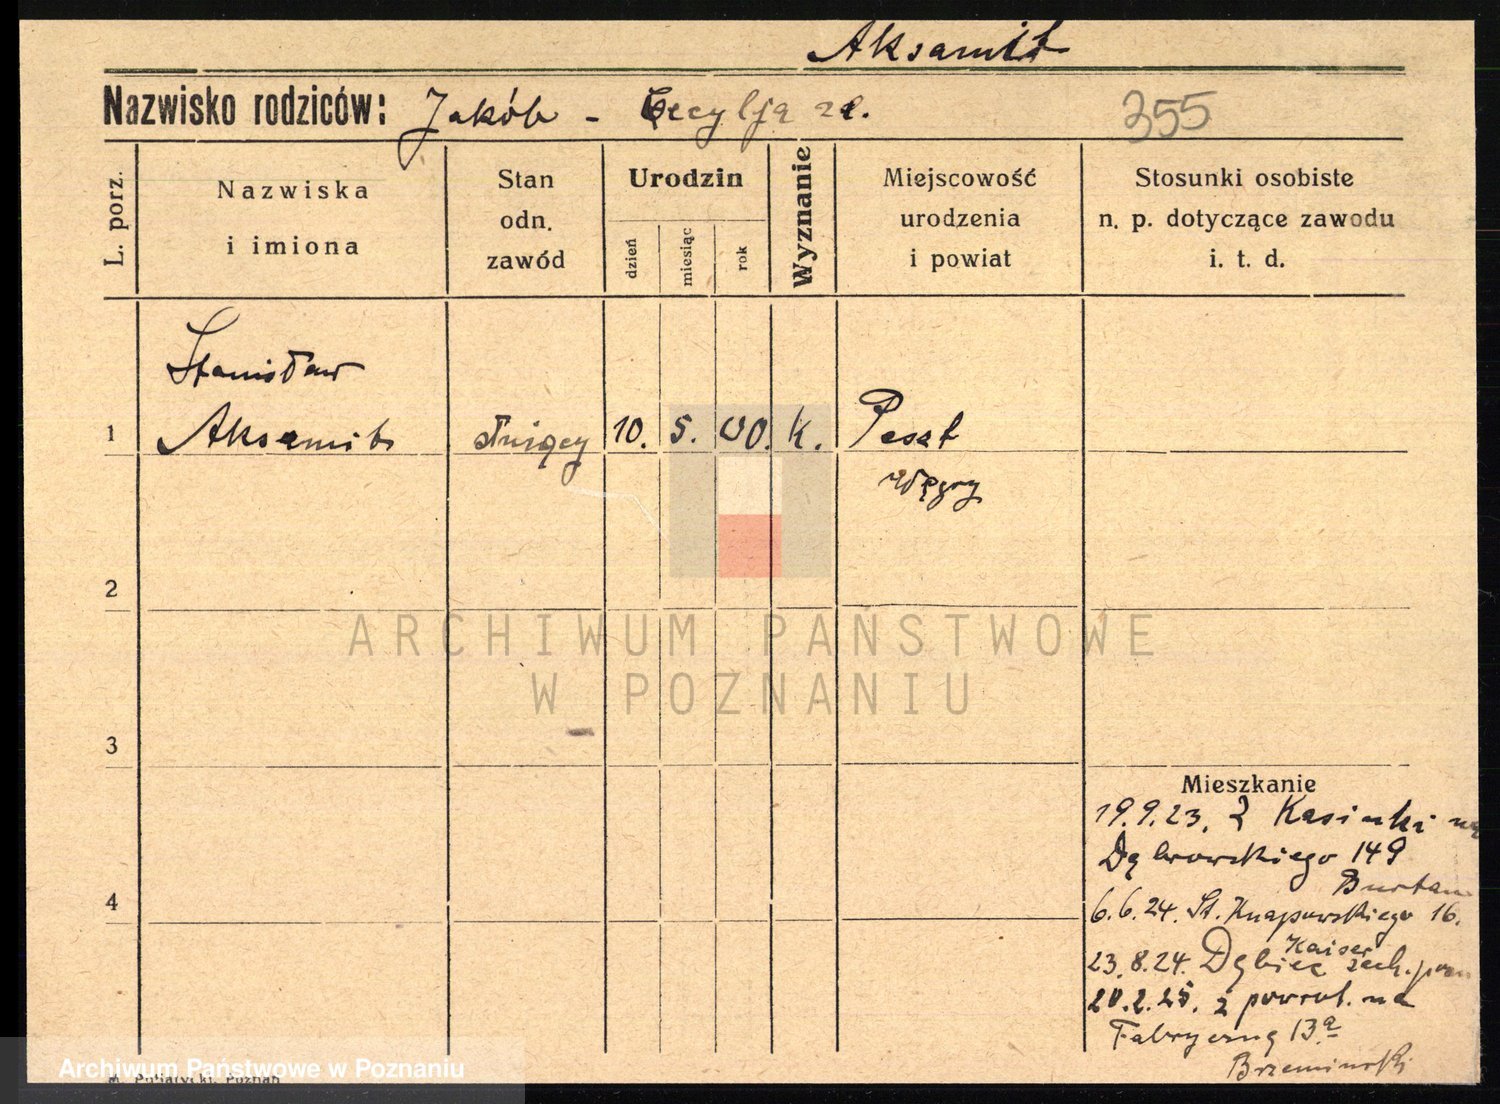 Aksamit
Nazwisko rodziców: Jakób - Cecylja
355
L. porz.
Nazwiska
i imiona
Stan
odn.
zawód
Urodzin
dzień
miesiąc
rok
Wyznanie
Miejscowość
urodzenia
i powiat
Stosunki osobiste
n. p. dotyczące zawodu
i. t. d.
Stanisław
1 Aksamit służący 10. 5. 00. k. Peszt
Węgry
2
ARCHIWUM PAŃSTWOWE
W POZNANIU
3
Mieszkanie
19.9.23. Z Kasinki na
Dąbrowskiego 149
4
6.6.24. St. Knapowskiego 16.
Kaiser
23.8.24. Dębiec zach.
20.2.25. z powrot. na
Fabryczną 13a
Brzeminski
Archiwum Państwowe w Poznaniu
M. Putiatycki, Poznań